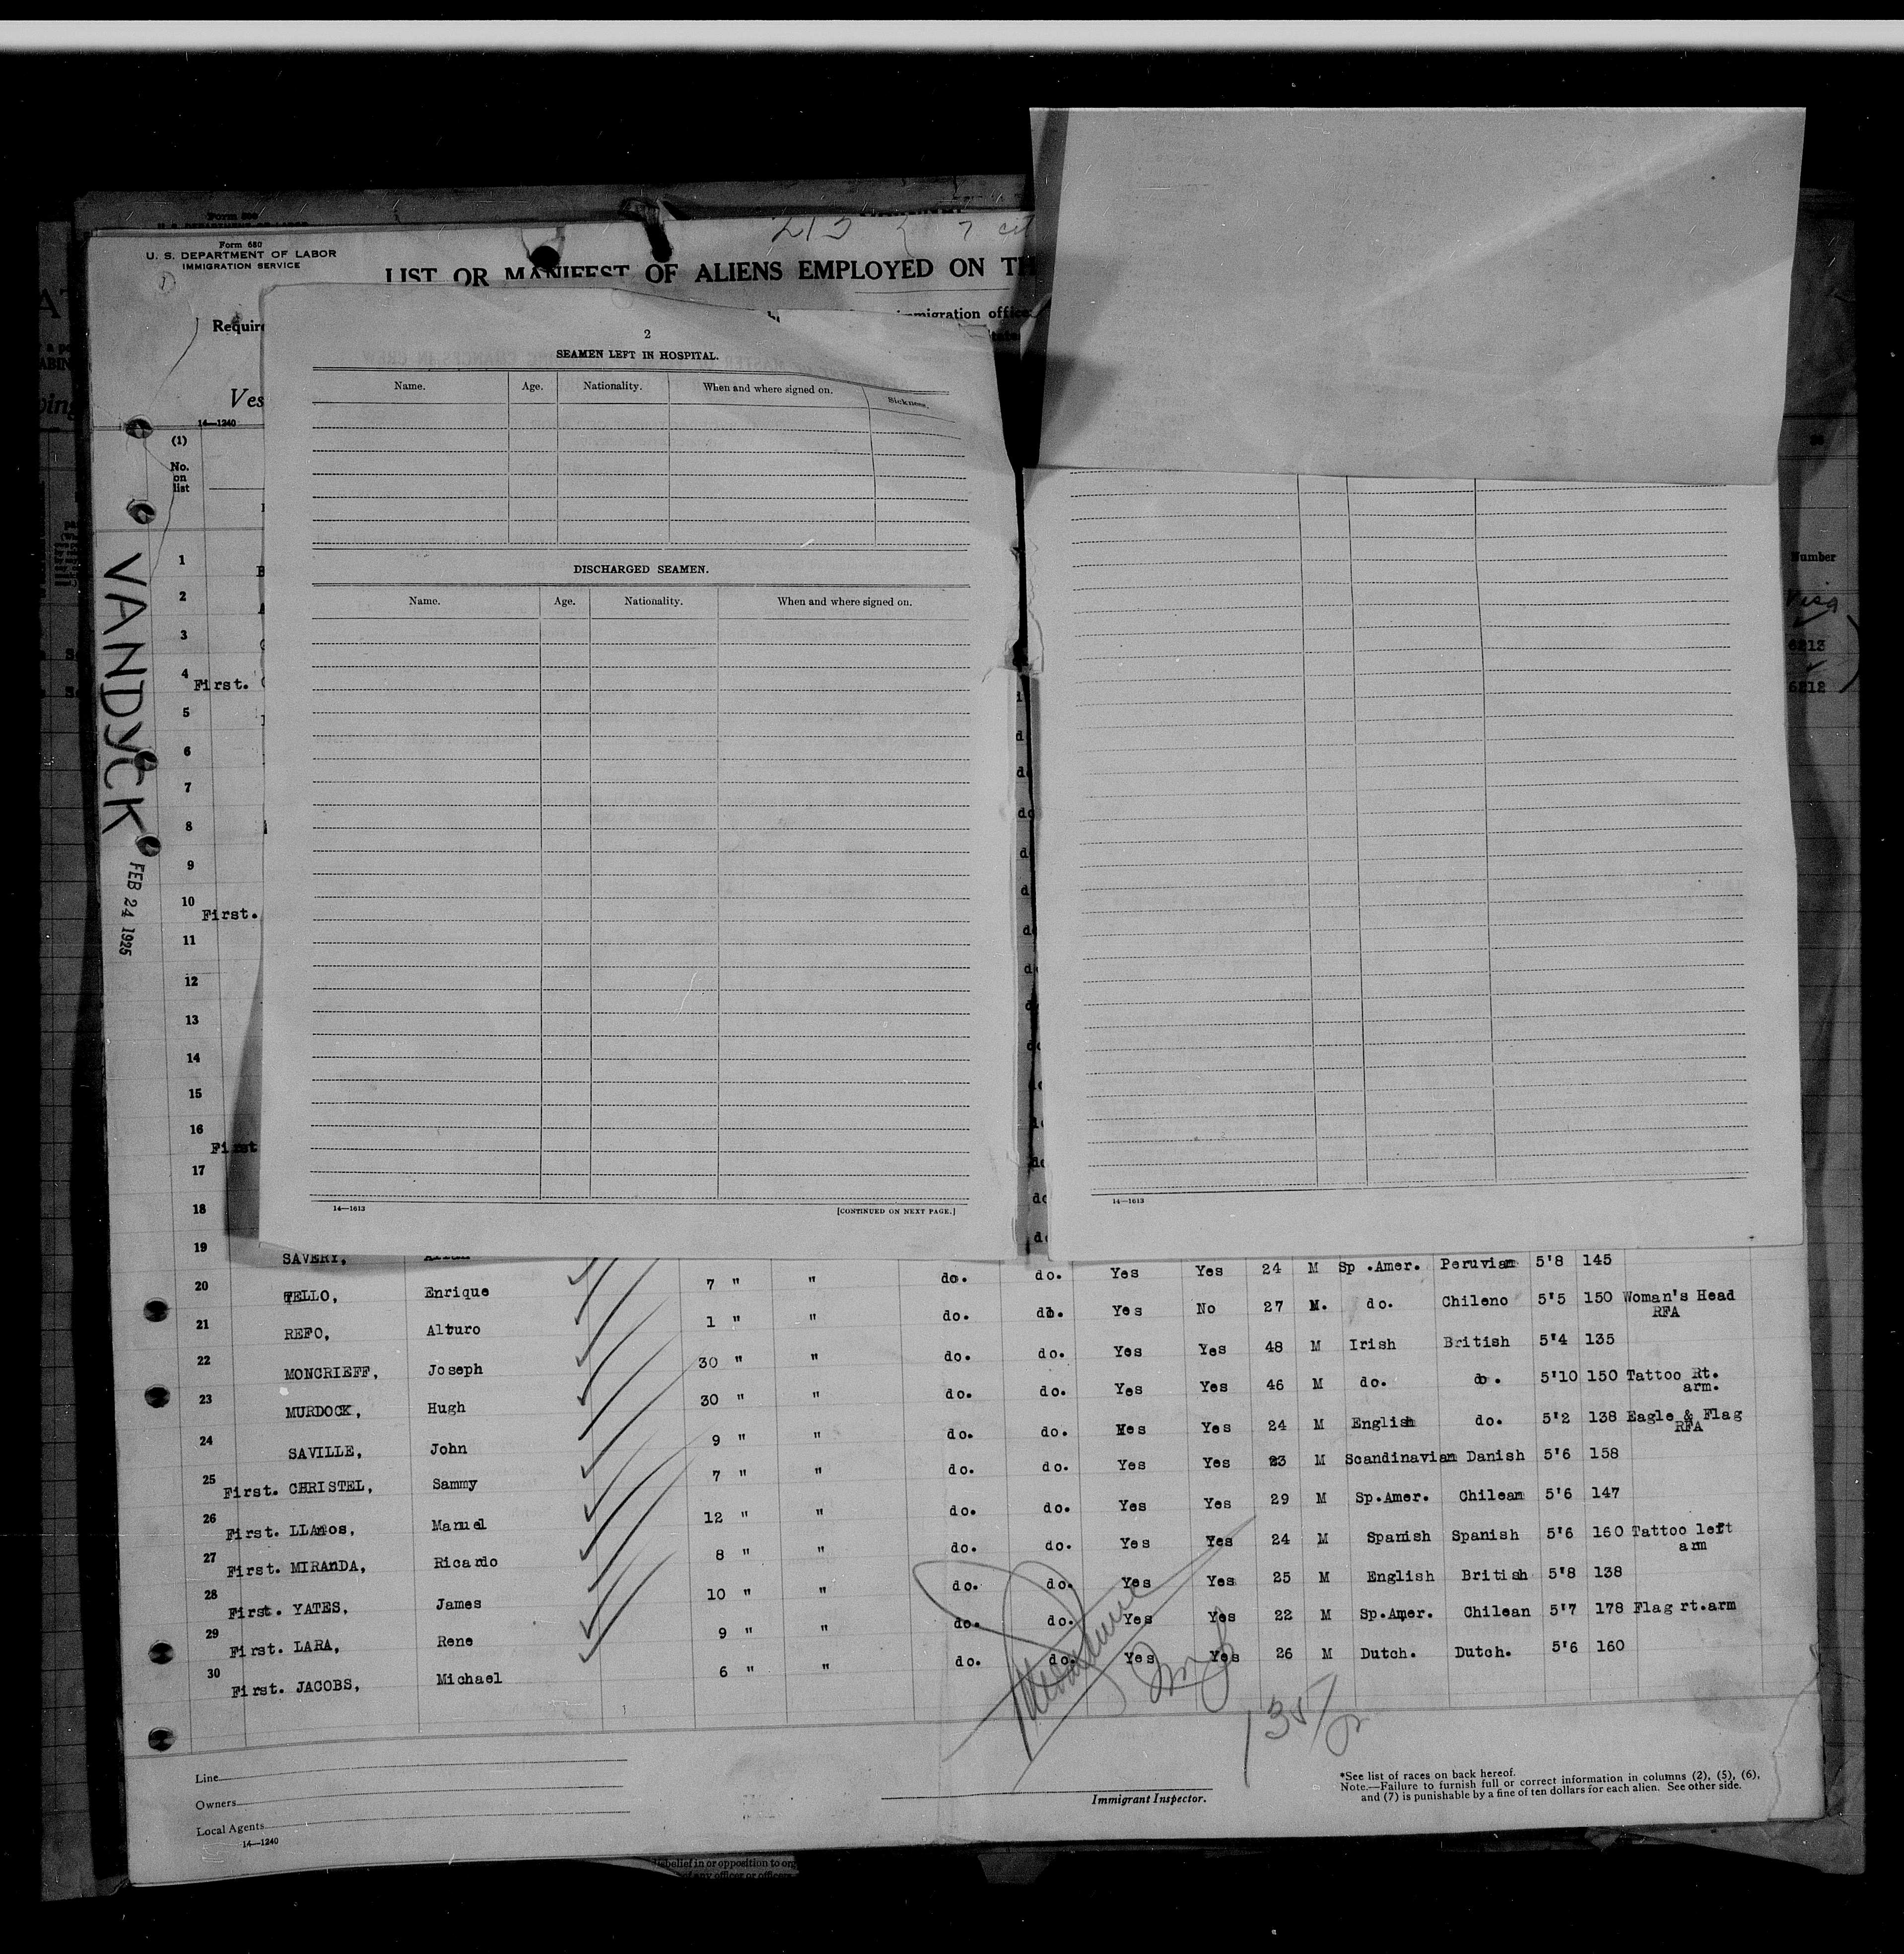 Form 680
U. S. DEPARTMENT OF LABOR
IMMIGRATION SERVICE
LIST OR MANIFEST OF ALIENS EMPLOYED ON TH
immigration office
Require
Ves
14—1240
(1)
No.
on
list
VANDYCK
FEB 24 1925
2
SEAMEN LEFT IN HOSPITAL.
Name. Age. Nationality. When and where signed on. Sickness.
DISCHARGED SEAMEN.
Name. Age. Nationality. When and where signed on.
14—1613 [CONTINUED ON NEXT PAGE.]
14—1613
Number
Visa
6213
6212
1
2
3
4 First.
5
6
7
8
9
10 First.
11
12
13
14
15
16 First
17
18
19 SAVERY,
20 TELLO, Enrique 7 " " do. do. Yes Yes 24 M Sp .Amer. Peruvian 5'8 145
21 REFO, Alturo 1 " " do. do. Yes No 27 M. do. Chileno 5'5 150 Woman's Head
RFA
22 MONCRIEFF, Joseph 30 " " do. do. Yes Yes 48 M Irish British 5'4 135
23 MURDOCK, Hugh 30 " " do. do. Yes Yes 46 M do. do. 5'10 150 Tattoo Rt.
arm.
24 SAVILLE, John 9 " " do. do. Yes Yes 24 M English do. 5'2 138 Eagle & Flag
RFA
25 First. CHRISTEL, Sammy 7 " " do. do. Yes Yes 23 M Scandinavian Danish 5'6 158
26 First. LLAmos, Manuel 12 " " do. do. Yes Yes 29 M Sp.Amer. Chilean 5'6 147
27 First. MIRANDA, Ricardo 8 " " do. do. Yes Yes 24 M Spanish Spanish 5'6 160 Tattoo left
arm
28 First. YATES, James 10 " " do. do. Yes Yes 25 M English British 5'8 138
29 First. LARA, Rene 9 " " do. do. Yes Yes 22 M Sp.Amer. Chilean 5'7 178 Flag rt.arm
30 First. JACOBS, Michael 6 " " do. do. Yes Yes 26 M Dutch. Dutch. 5'6 160
Line
Owners
Local Agents
14—1240
Immigrant Inspector.
*See list of races on back hereof.
Note.—Failure to furnish full or correct information in columns (2), (5), (6),
and (7) is punishable by a fine of ten dollars for each alien. See other side.
belief in or opposition to org
of any officer or officers